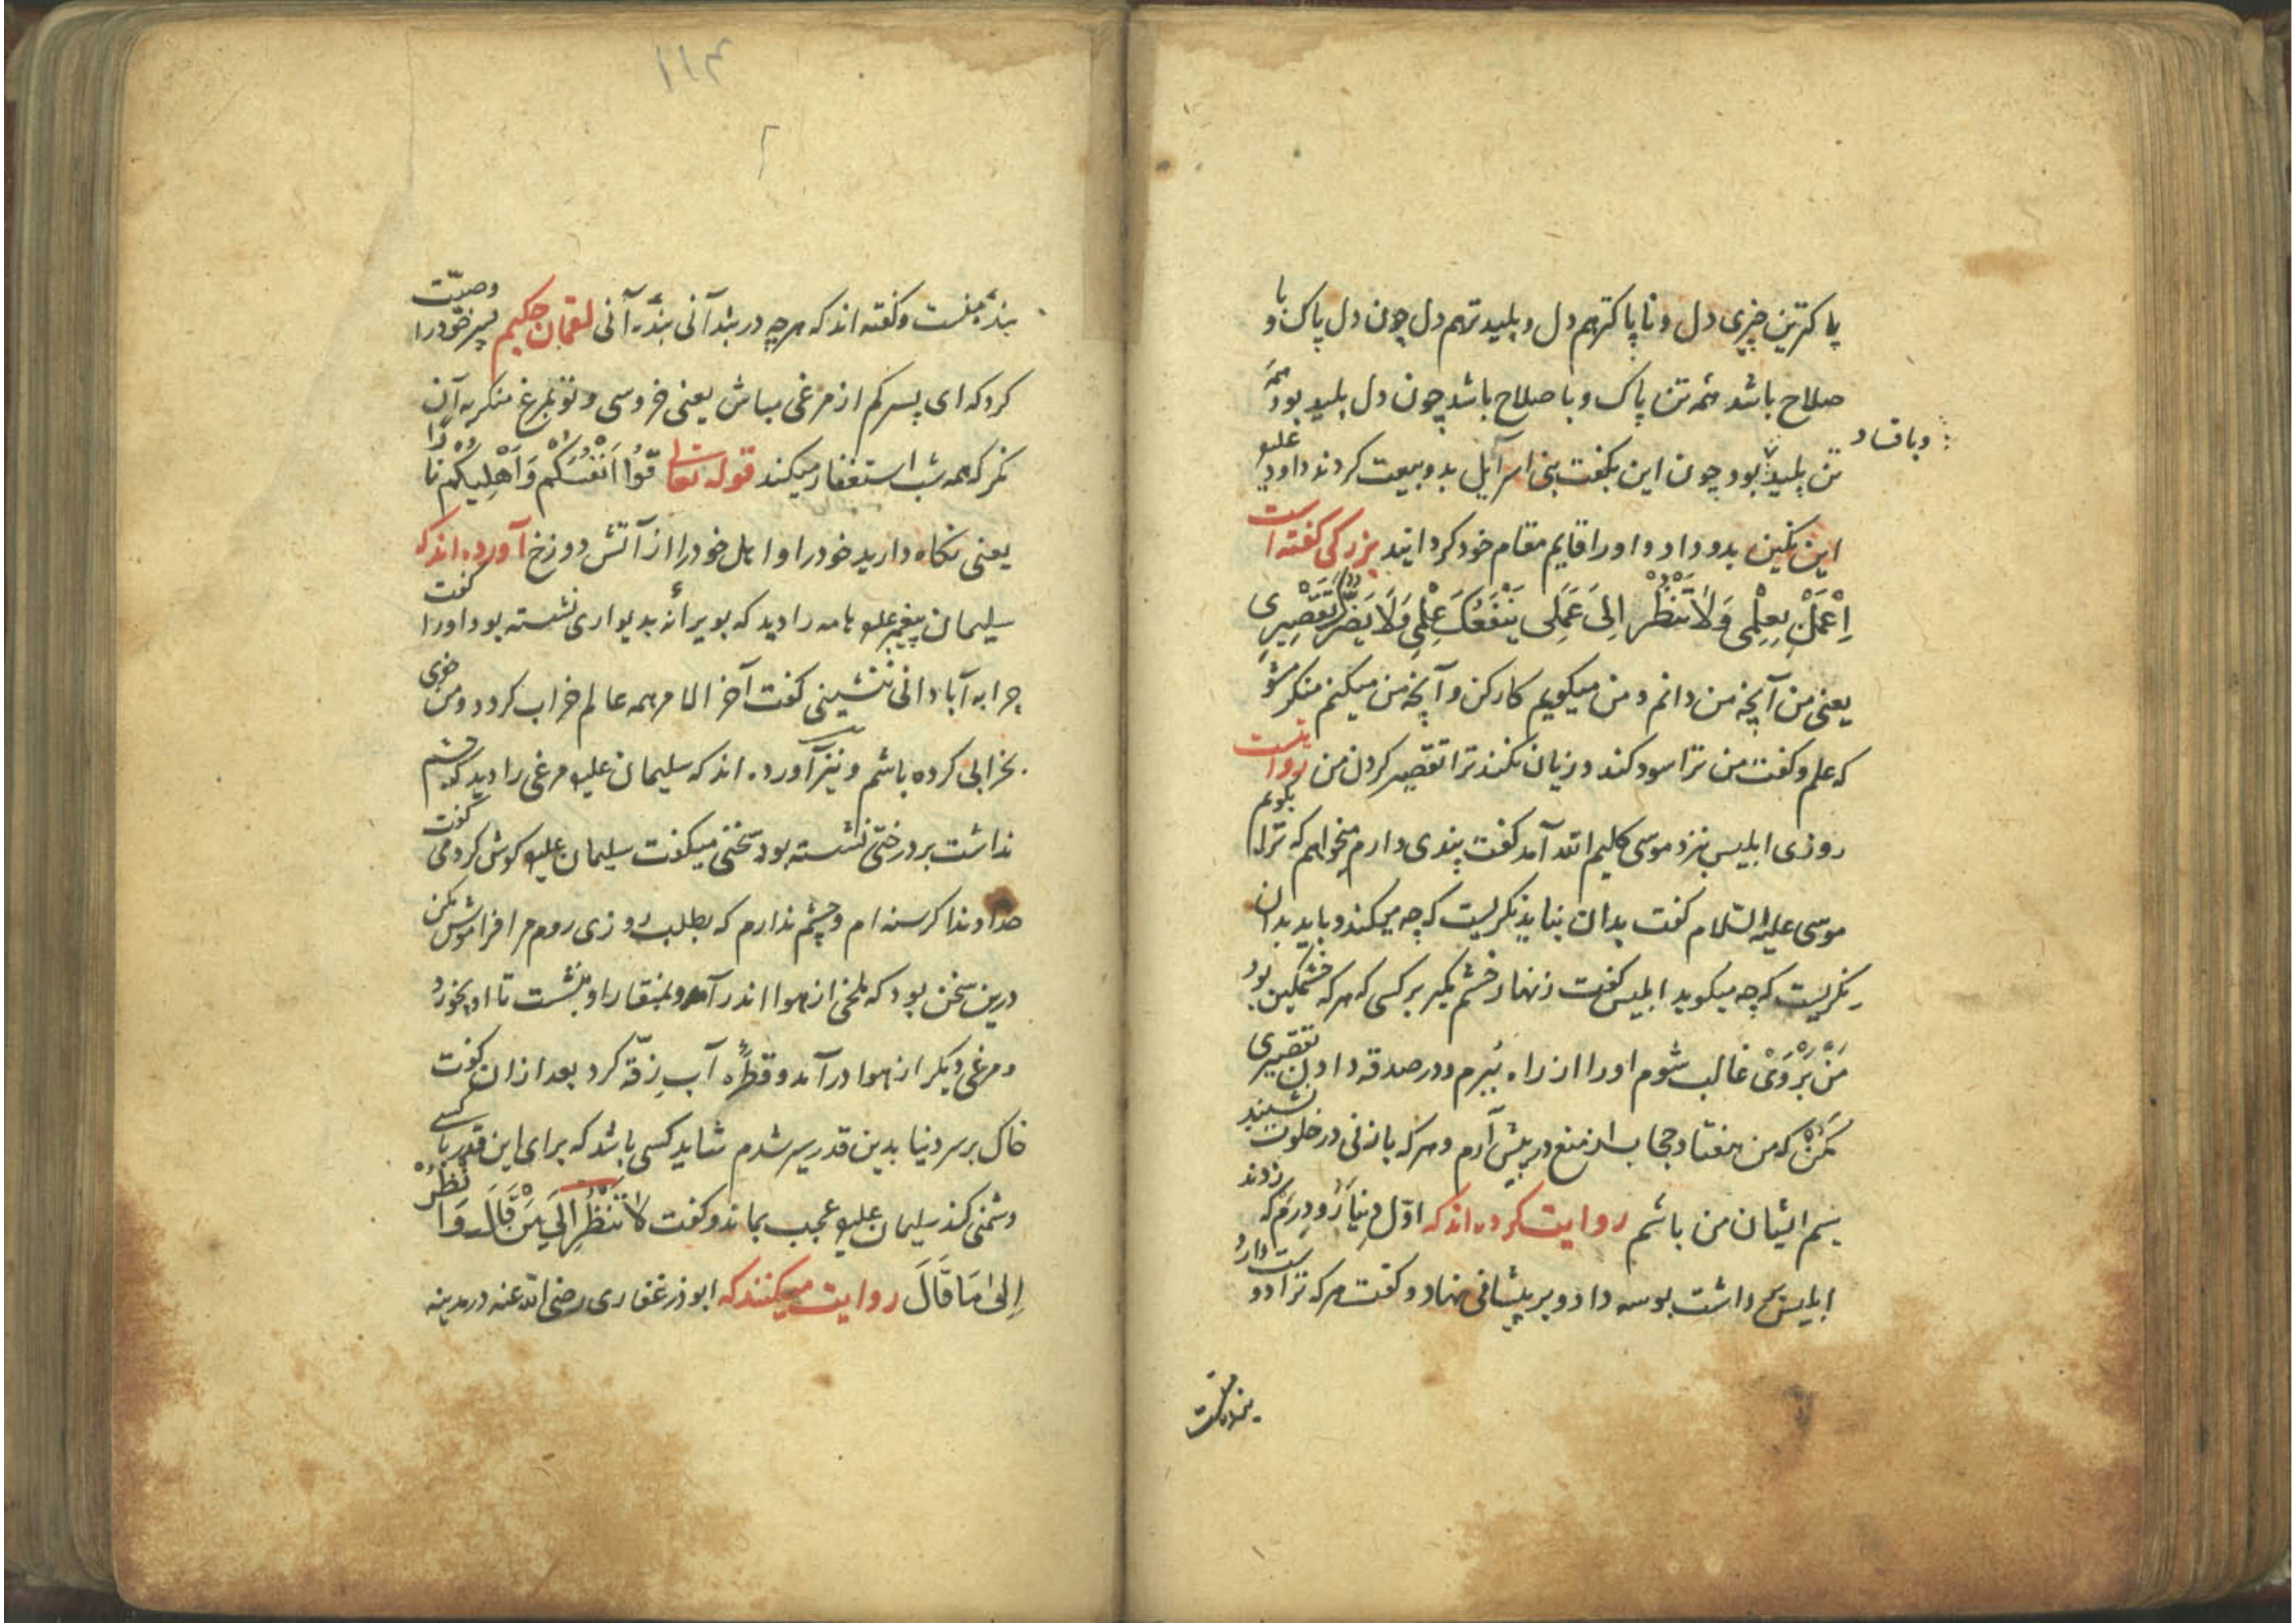 پاکترین چیزی دل و ناپاکتر هم دل و پلیدتر هم دل چون دل پاک و با
صلاح باشد همه تن پاک و با صلاح باشد چون دل پلید بود همه
تن پلید بود چون این بکفت بنی اسرآیل بدو بیعت کردند داود علیه
و با فساد
این نکین بدو داد و او را قایم مقام خود کردانید بزرکی کفته است
اِعْمَلْ بِعِلْمِی وَلَا تَنْظُرْ اِلیَ عَمَلِی یَنْفَعُکَ عِلْمِی وَلَا یَضُرُّکَ تَقْصِیرِی
یعنی من آنچه من دانم و من میکویم کار کن و آنچه من میکنم منکر شو
که علم و کفت من ترا سود کند و زیان نکند ترا تقصیر کردن من روایتست
روزی ابلیس بنزد موسی کلیم الله آمد کفت پندی دارم میخواهم که ترا بکویم
موسی علیه السّلام کفت بدان نباید نکریست که چه میکند و باید بدان
نکریست که چه میکوید ابلیس کفت زنهار خشم مکیر بر کسی که هر که خشمکین بود
مَنْ بَرْوَیْ غالب شوم او را از راه بُبرم و در صدقه دادن تقصیری
مَکُنْ که من هفتاد حجاب از منع در پیش آرم و هر که با زنی در خلوت نشیند
سیم ایشان من باشم روایت کرده اند که اوّل دِینَار و دِرَم که زدند
ابلیس بر داشت بوسه داد و بر پیشانی نهاد و کفت هر که ترا دوست دارد
بندهٔ منست
۱۱۴
بندهٔ منست و کفته اند که هر چه در بند آنی بندهٔ آنی لقمان حکیم پسر خود را وصیّت
کرد که ای پسر کم از مرغی مباش یعنی خروسی و تو بمرغ منکر به آن
نکر که همه شب استغفار میکند قوله تعالی قُوا اَنْفُسَکُمْ وَاَهْلِیکُمْ نَارًا
یعنی نکاه دارید خود را و اهل خود را از آتش دوزخ آورده اند که
سلیمان پیغمبر علیه هامه را دید که بویرانه بدیواری نشسته بود او را کفت
چرا به آبادانی ننشینی کفت آخر الامر همه عالم خراب کردد و من خوی
بخرابی کرده باشم و نیز آورده اند که سلیمان علیه مرغی را دید که چشم
نداشت بر درختی نشسته بود سخنی میکفت سلیمان علیه کوش کرد می کفت
خداوندا کرسنه ام و چشم ندارم که بطلب روزی روم مرا فراموش مکن
درین سخن بود که ملخی از هوا اندر آمد و بمنقار او بنشست تا او بخورد
و مرغی دیکر از هوا در آمد و قطرهٔ آب زقّه کرد بعد از ان کفت
خاک بر سر دنیا بدین قدر سیر شدم شاید کسی باشد که برای این قدر با کسی
دشمنی کند سلیمان علیه عجب بماند و کفت لَا تَنْظُرْ اِلَی مَنْ قَالَ وَانْظُرْ
اِلیٰ مَا قَالَ روایت میکنند که ابوذر غفاری رضی الله عنه در مدینه